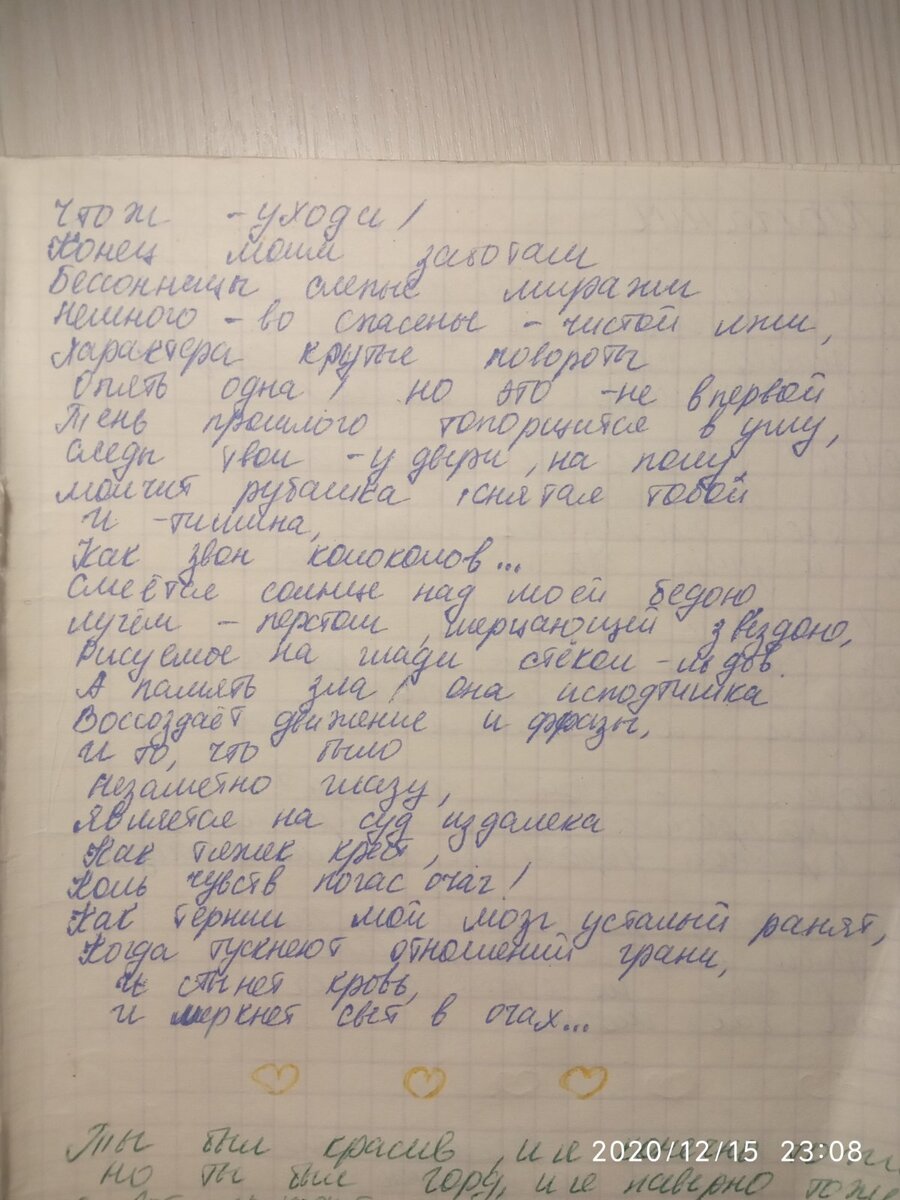 Что ж - уходи!
Конец моим заботам
Бессонницы слепые миражи
Немного - во спасенье - чистой лжи,
Характера крутые повороты
Опять одна! но это - не впервой
Тень прошлого топорщится в углу,
Следы твои - у двери, на полу,
Молчит рубашка, снятая тобой
И - тишина,
Как звон колоколов...
Смеётся солнце над моей бедою
лучём - перстом, мерцающей звездою,
Рисуемое на глади стёкол - льдов.
А память зла! она исподтишка
Воссоздаёт движение и фразы,
И то, что было
Незаметно глазу,
Является на суд издалека
Как тяжек крест,
Коль чувств погас очаг!
Как тернии мой мозг усталый ранят,
Когда тускнеют отношений грани,
И стынет кровь,
И меркнет свет в очах...
Ты был красив, и я
но ты был горд, и я наверно тоже
2020/12/15 23:08